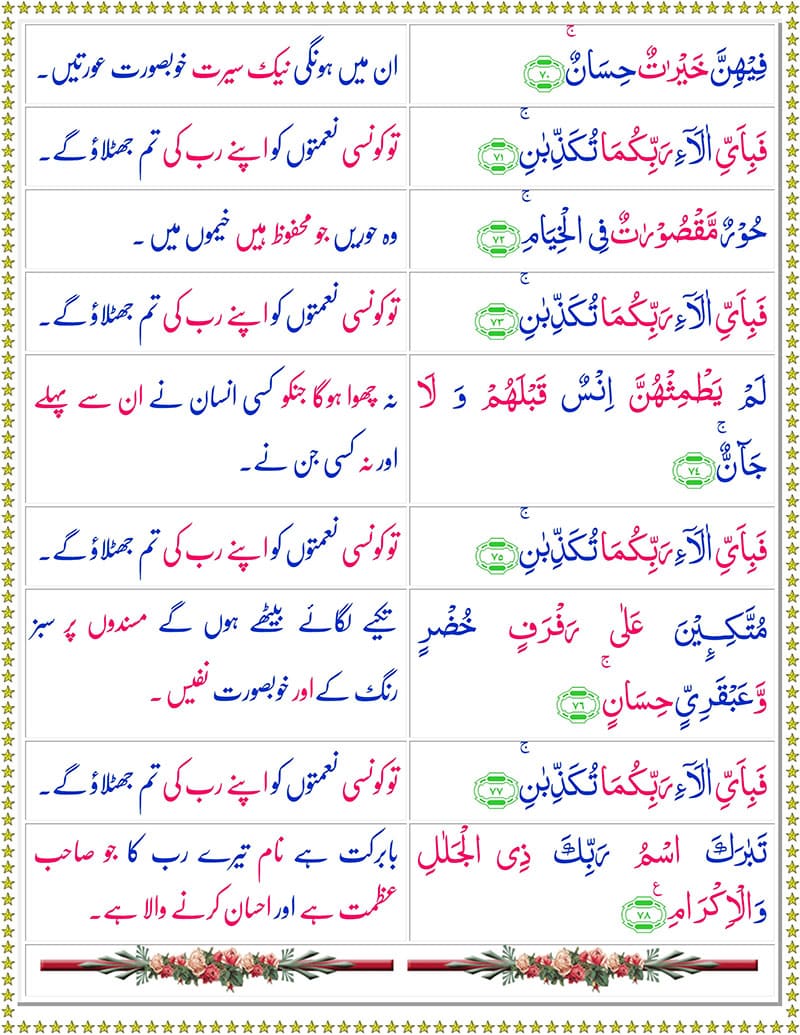 فِیْهِنَّ خَیْرٰتٌ حِسَانٌ ۚ ﴿۷۰﴾
ان میں ہونگی نیک سیرت خوبصورت عورتیں۔
فَبِاَیِّ اٰلَآءِ رَبِّكُمَا تُكَذِّبٰنِ ۚ ﴿۷۱﴾
تو کونسی نعمتوں کو اپنے رب کی تم جھٹلاؤ گے۔
حُوْرٌ مَّقْصُوْرٰتٌ فِی الْخِیَامِ ۚ ﴿۷۲﴾
وہ حوریں جو محفوظ ہیں خیموں میں ۔
فَبِاَیِّ اٰلَآءِ رَبِّكُمَا تُكَذِّبٰنِ ۚ ﴿۷۳﴾
تو کونسی نعمتوں کو اپنے رب کی تم جھٹلاؤ گے۔
لَمْ یَطْمِثْهُنَّ اِنْسٌ قَبْلَهُمْ وَ لَا
جَآنٌّ ۚ ﴿۷٤﴾
نہ چھوا ہوگا جنکو کسی انسان نے ان سے پہلے
اور نہ کسی جن نے۔
فَبِاَیِّ اٰلَآءِ رَبِّكُمَا تُكَذِّبٰنِ ۚ ﴿۷۵﴾
تو کونسی نعمتوں کو اپنے رب کی تم جھٹلاؤ گے۔
مُتَّكِـِٕیْنَ عَلٰی رَفْرَفٍ خُضْرٍ
وَّ عَبْقَرِیٍّ حِسَانٍ ۚ ﴿۷۶﴾
تکیے لگائے بیٹھے ہوں گے مسندوں پر سبز
رنگ کے اور خوبصورت نفیس ۔
فَبِاَیِّ اٰلَآءِ رَبِّكُمَا تُكَذِّبٰنِ ۚ ﴿۷۷﴾
تو کونسی نعمتوں کو اپنے رب کی تم جھٹلاؤ گے۔
تَبٰرَكَ اسْمُ رَبِّكَ ذِی الْجَلٰلِ
وَ الْاِكْرَامِ ۧ ﴿۷۸﴾
بابرکت ہے نام تیرے رب کا جو صاحب
عظمت ہے اور احسان کرنے والا ہے۔